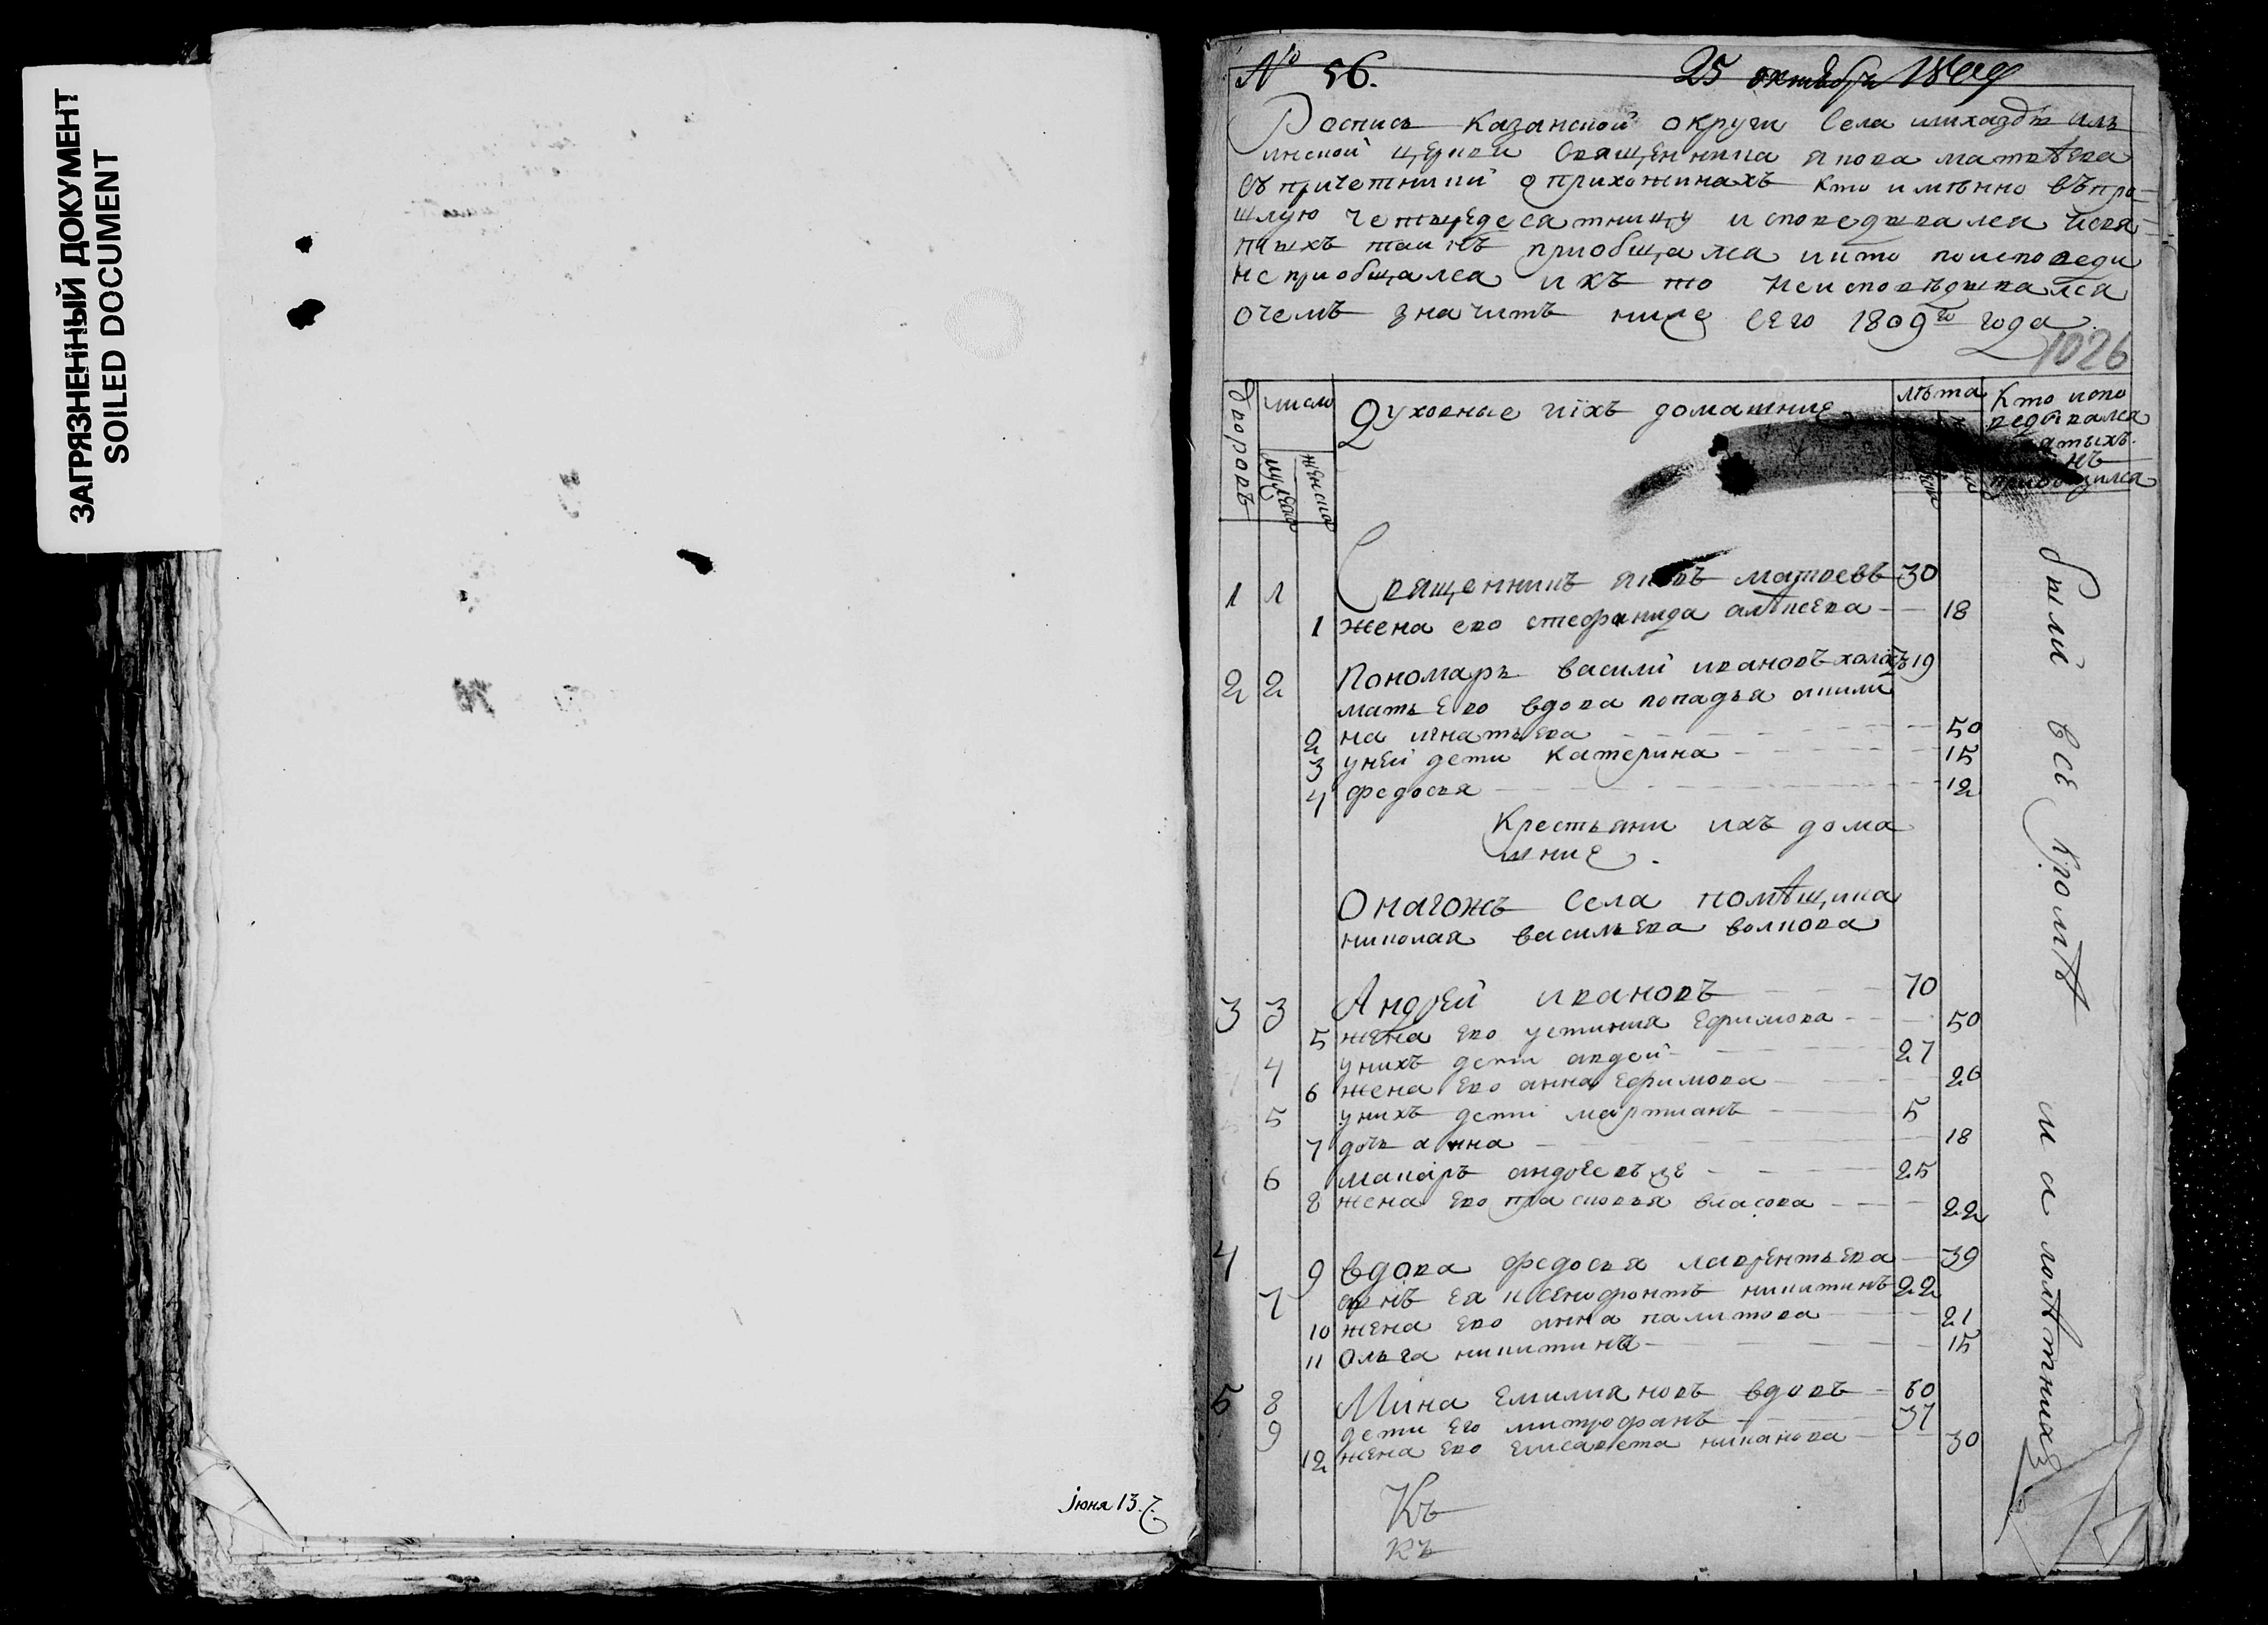 ЗАГРЯЗНЕННЫЙ ДОКУМЕНТ
SOILED DOCUMENT
Іюня 13.
№ 56.
25 октября 1809
Роспись казанской округи села
инской церкви священника якова матвѣева
съ причетники о прихожинахъ кто имѣнно въ про-
шлую четыредесатницу исповедывалса исвя-
тыхъ таинъ приобщалса икто поисповеди
не приобщалса ихъ то неисповѣдывалса
очемъ значитъ ниже сего 1809го года
1026
дворовъ
число
мужеска
женска
Духовные иіхъ домашние
лѣта
Кто испо
ведывалса
святыхъ
нъ
приобщилса
1 1 Священникъ яковъ матвеевъ 30
1 жена ево стефанида алѣксеева 18
2 2 Пономарь василй ивановъ холостъ 19
мать Ево вдова попадья акили
2 на игнатьева 50
3 уней дети катерина 15
4 федосья 12
Крестьяни ихъ дома
шние.
Онагожъ села помѣщика
николая васильева волкова
3 3 Андрей ивановъ 70
5 жена Ево устиния Ефимова 50
4 унихъ дети авдей 27
6 жена Ево анна Ефимова 26
5 унихъ дети мартианъ 5
7 дочь анна 18
6 макаръ андреевъ же 25
8 жена Ево прасковья власова 22
4 9 вдова федосья лаврентьева 39
7 сынъ Ея ксенофонтъ никитинъ 22
10 жена Ево анна палитова 21
11 Ольга никитина 15
5 8 Мина Емилияновъ вдовъ 60
9 дети Его митрофанъ 37
12 жена Ево Елисавета никанова 30
Къ
къ
были всЕ кромѣ малолѣтнихъ